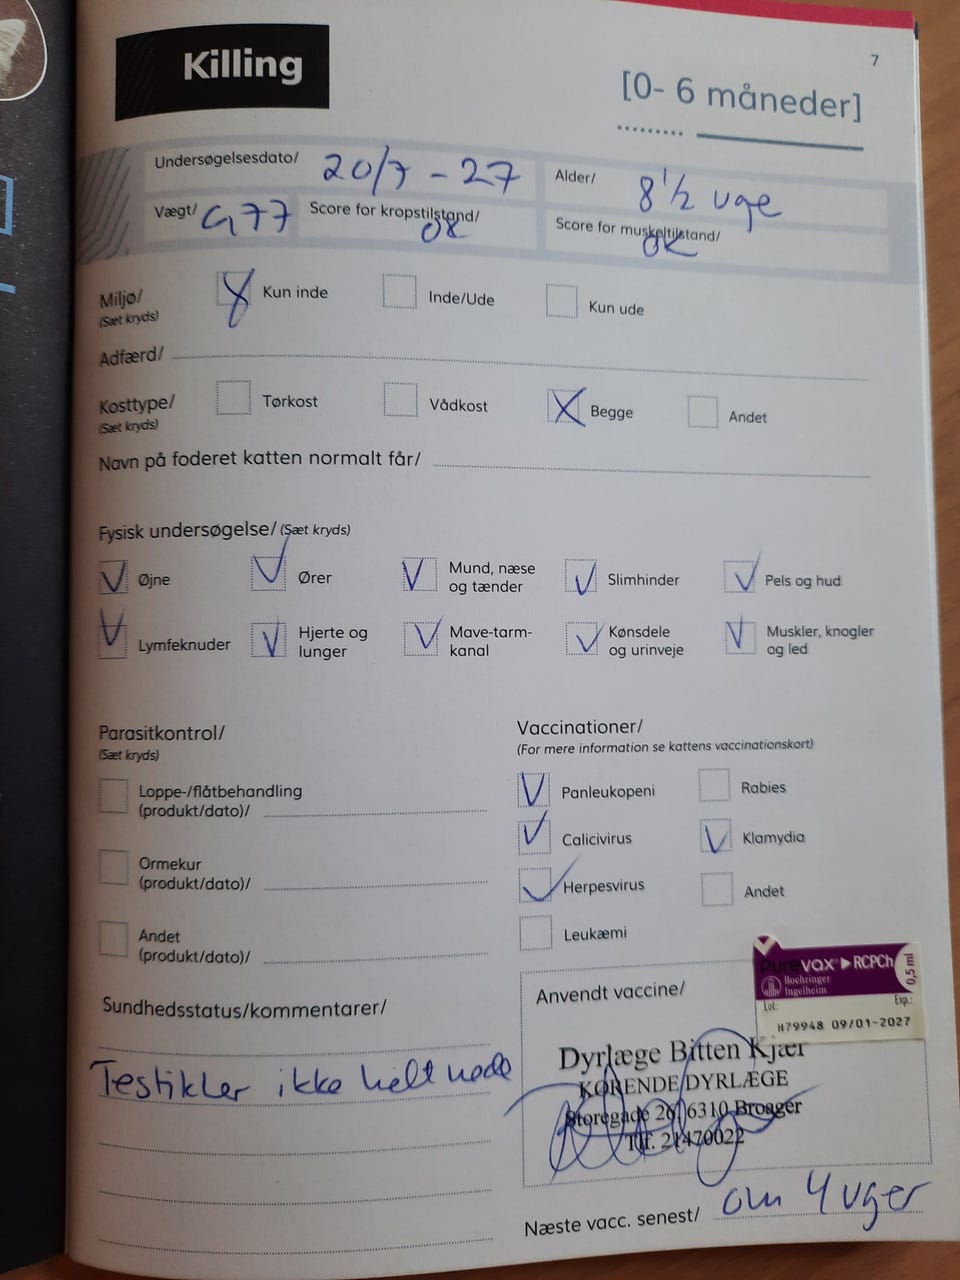 Killing
7
[0- 6 måneder]
Undersøgelsesdato/ 20/7 - 27
Alder/ 8 1/2 uge
Vægt/ 977
Score for kropstilstand/ OK
Score for muskeltilstand/ OK
Miljø/
(Sæt kryds)
Kun inde
Inde/Ude
Kun ude
Adfærd/
Kosttype/
(Sæt kryds)
Tørkost
Vådkost
Begge
Andet
Navn på foderet katten normalt får/
Fysisk undersøgelse/ (Sæt kryds)
Øjne
Ører
Mund, næse
og tænder
Slimhinder
Pels og hud
Lymfeknuder
Hjerte og
lunger
Mave-tarm-
kanal
Kønsdele
og urinveje
Muskler, knogler
og led
Parasitkontrol/
(Sæt kryds)
Loppe-/flåtbehandling
(produkt/dato)/
Ormekur
(produkt/dato)/
Andet
(produkt/dato)/
Sundhedsstatus/kommentarer/
Testikler ikke helt nede
Vaccinationer/
(For mere information se kattens vaccinationskort)
Panleukopeni
Rabies
Calicivirus
Klamydia
Herpesvirus
Andet
Leukæmi
Anvendt vaccine/
purevax RCPCh
0,5 ml
Boehringer
Ingelheim
Lot:
Exp.:
H79948 09/01-2027
Dyrlæge Bitten Kjær
KØRENDE DYRLÆGE
Storegade 26, 6310 Broager
Tlf. 21470022
Næste vacc. senest/ om 4 uger